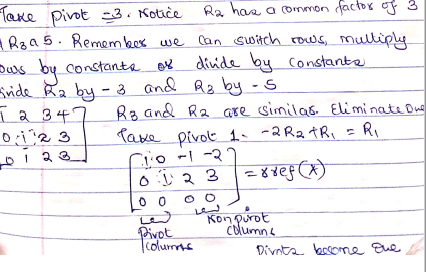 Take pivot = 3. Notice R2 has a common factor of 3
R3 a 5. Remember we can switch rows, multiply
ows by constants or divide by constants
ivide R2 by -3 and R3 by -5
1 2 3 4 R3 and R2 are similar. Eliminate one
0 1 2 3 Take pivot 1. -2R2 + R1 = R1
0 1 2 3
1 0 -1 -2
0 1 2 3 = rref(A)
0 0 0 0
Pivot columns
Non pivot columns
Pivots become one